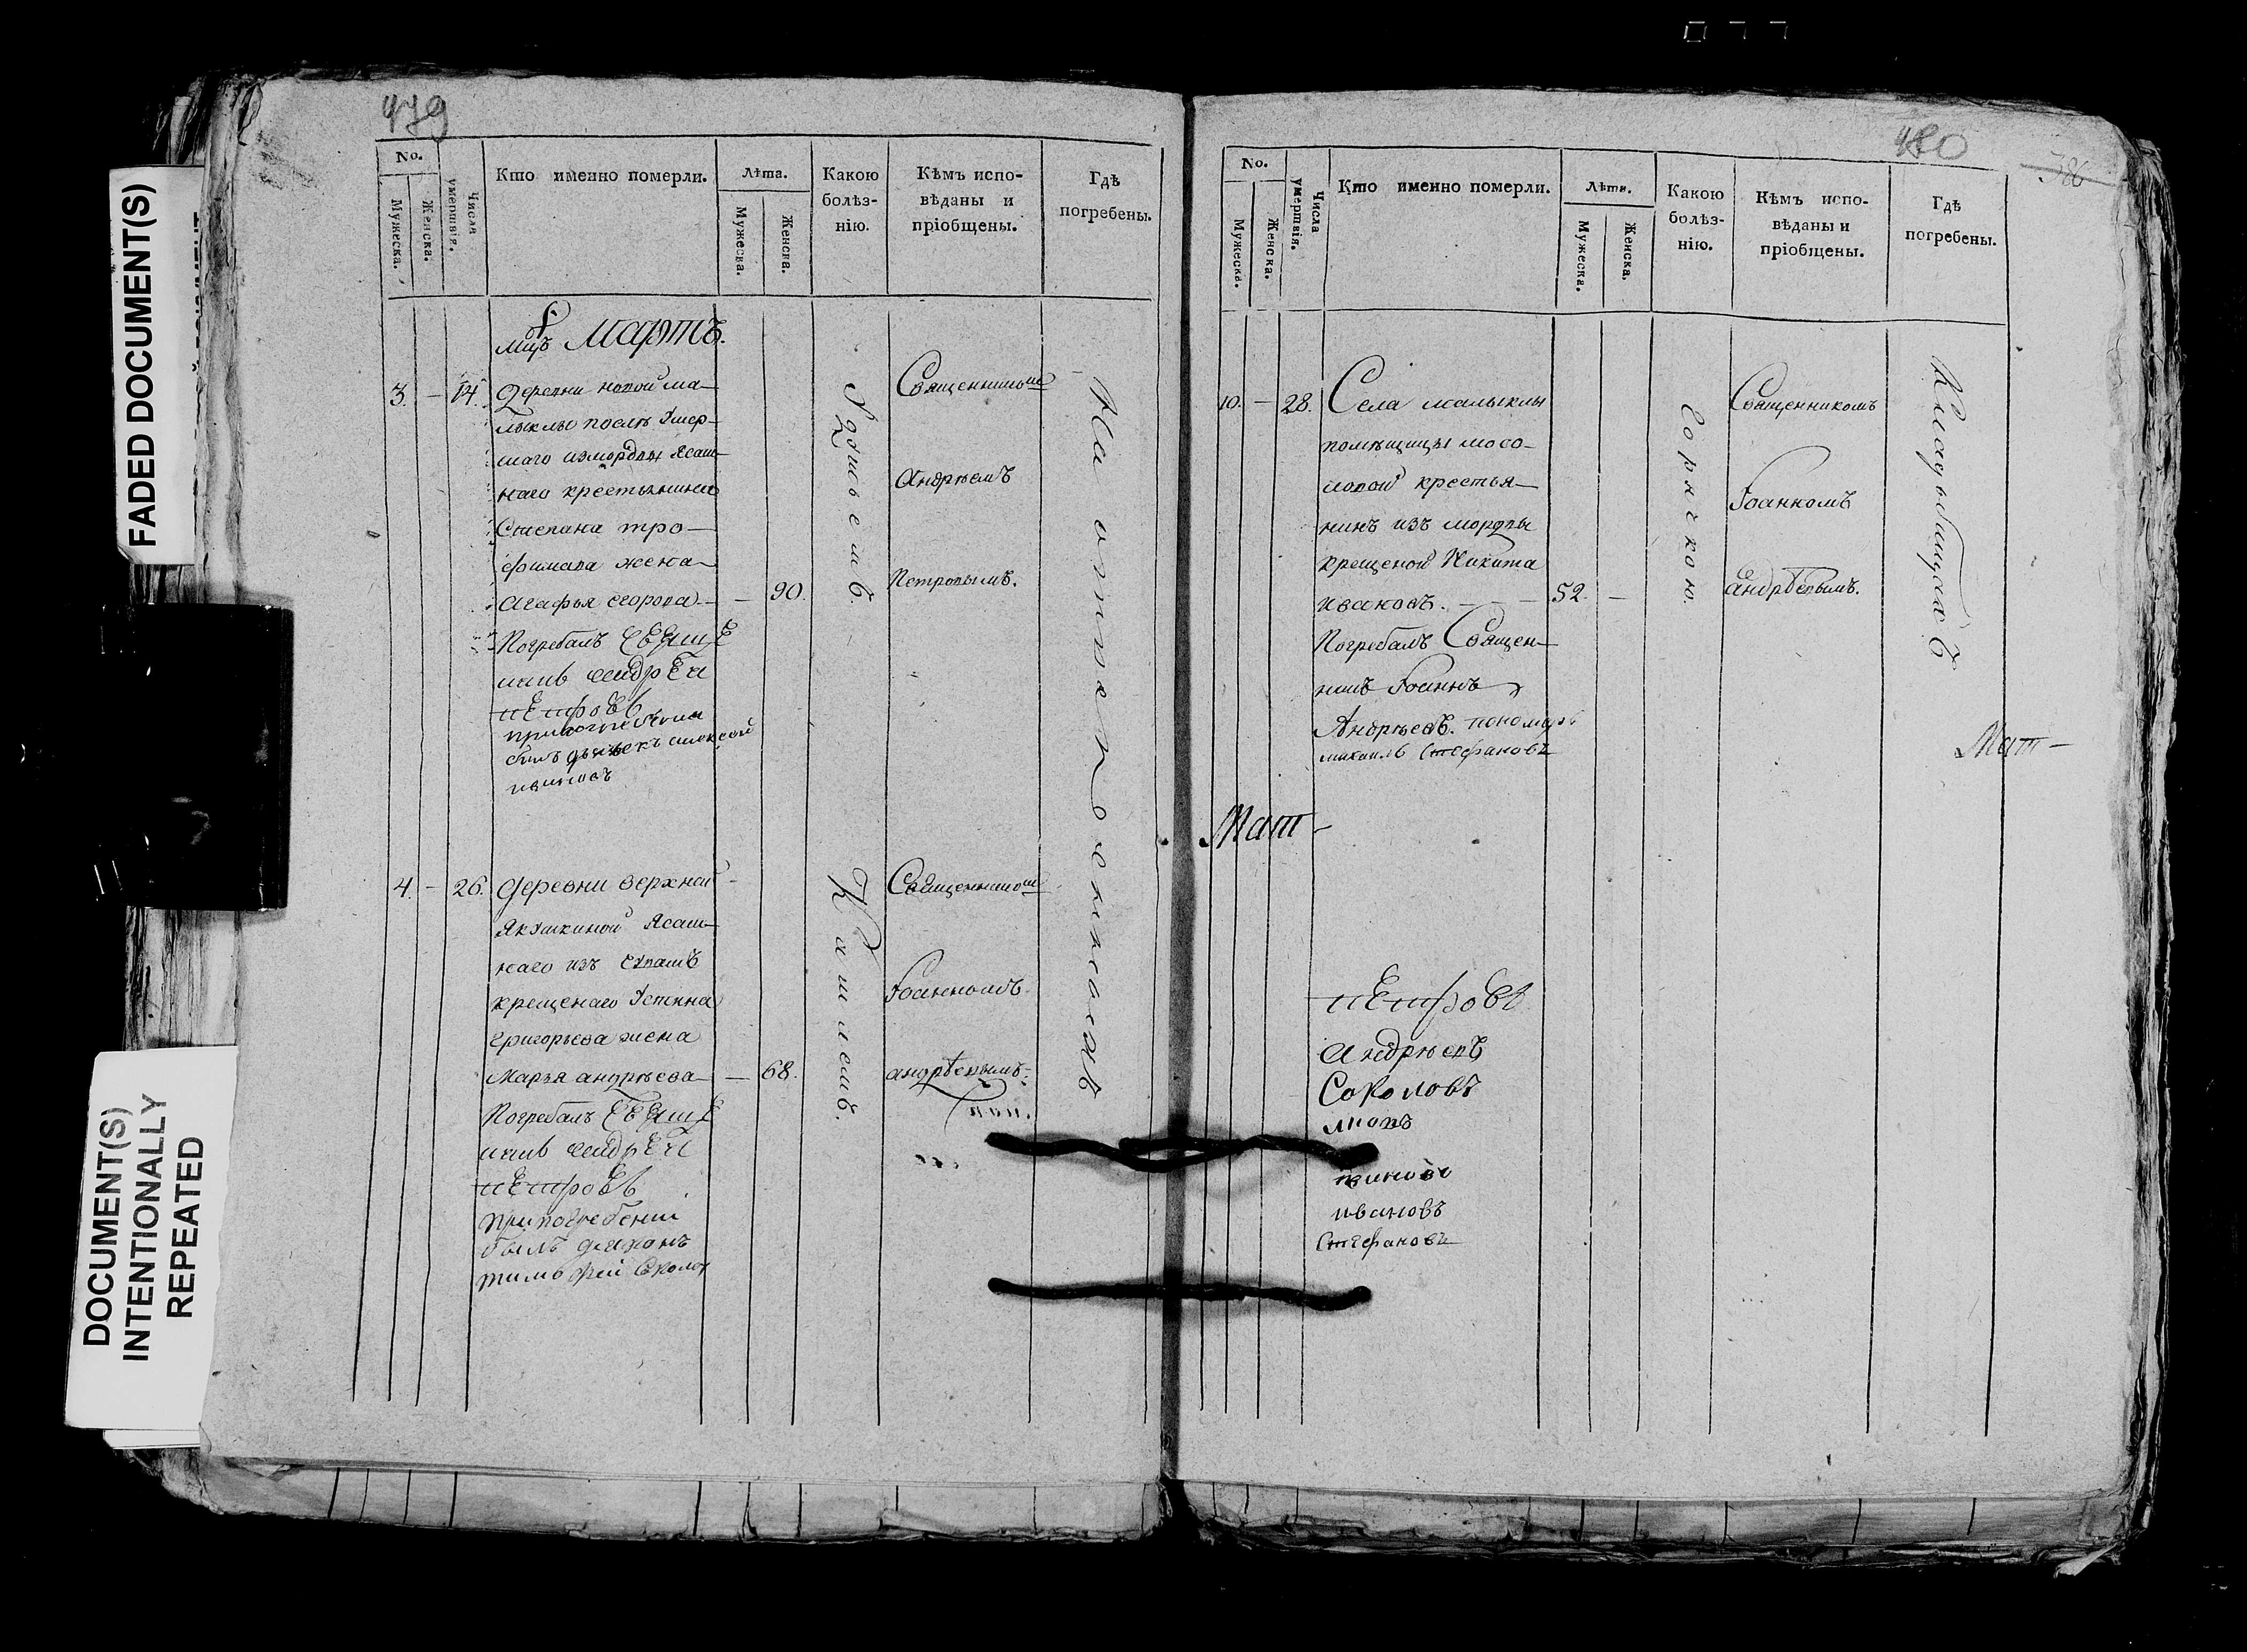 FADED DOCUMENT(S)
DOCUMENT(S)
INTENTIONALLY
REPEATED
479
No.
Мужеска.
Женска.
Числа умертвія.
Кто именно померли.
Лѣта.
Мужеска.
Женска.
Какою
болѣз-
нію.
Кѣмъ испо-
вѣданы и
пріобщены.
Гдѣ
погребены.
Мартъ.
3. – 14.
деревни новой ма-
лыклы послѣ умер-
шаго измордвы ясаш-
наго крестьянина
Степана тро-
фимова жена
агафья егорова – – 90.
Погребалъ священ
никъ андрей
петровъ
при погребении
былъ дьячекъ алексей
ивановъ
Священником
Андрѣемъ
Петровымъ.
4. – 26.
деревни верхней
Якушкиной Ясаш-
наго изъ
крещенаго Устина
григорьева жена
Марья андрѣева – – 68.
Погребалъ священ
никъ андрей
петровъ
при погребении
былъ диаконъ
тимофей
Кашлемъ.
Священником
Іоанномъ
андрѣевымъ.
480
386
No.
Мужеска.
Женска.
Числа умертвія.
Кто именно померли.
Лѣта.
Мужеска.
Женска.
Какою
болѣз-
нію.
Кѣмъ испо-
вѣданы и
пріобщены.
Гдѣ
погребены.
10. – 28.
Села малыклы
помѣщицы мосо-
ловой крестья-
нинъ изъ мордвы
крещеной Никита
ивановъ. – – 52. –
Погребалъ Священ-
никъ Іоаннъ
Андрѣевъ. пономарь
михаилъ Стефановъ
Горячкою.
Священникомъ
Іоанномъ
андрѣевымъ.
На кладбищѣ
Мат-
Мат-
петровъ
андрѣевъ
Соколовъ
ивановъ
Стефановъ